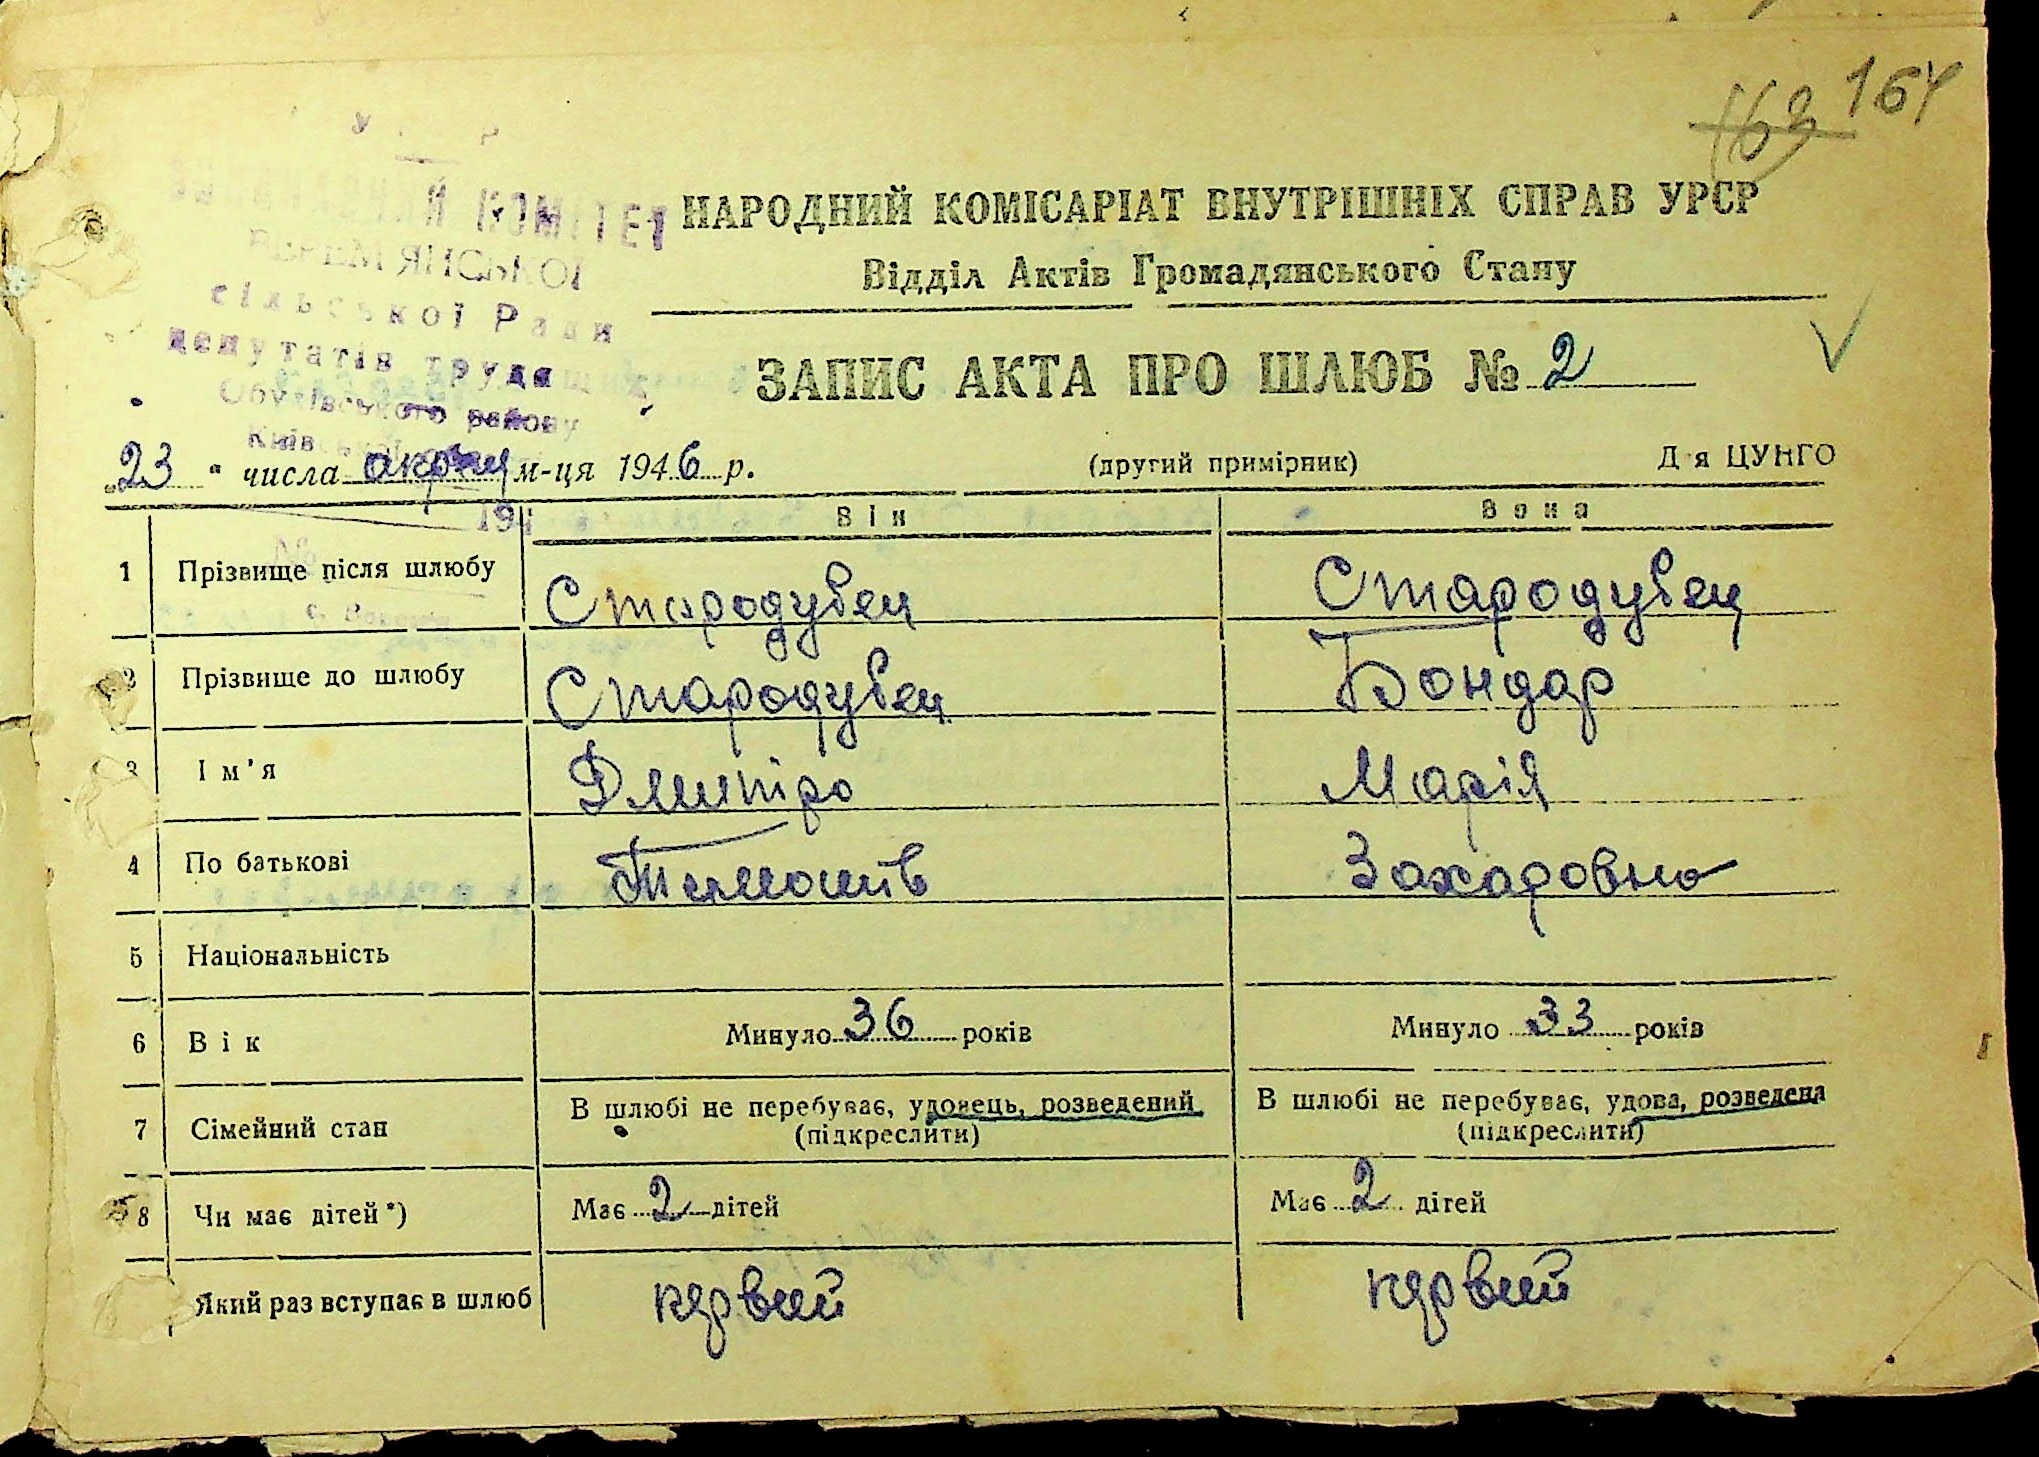 163 164
Й КОМІТЕТ
НАРОДНИЙ КОМІСАРІАТ ВНУТРІШНІХ СПРАВ УРСР
Відділ Актів Громадянського Стану
сільської Ради
депутатів труда
ЗАПИС АКТА ПРО ШЛЮБ № 2
району
23 " числа м-ця 1946 р.
(другий примірник) Д я ЦУНГО
194
Він Вона
1 Прізвище після шлюбу Стародубец Стародубец
2 Прізвище до шлюбу Стародубец Бондар
3 Ім'я Дмитро Марія
4 По батькові Захаровна
5 Національність
6 Вік Минуло 36 років Минуло 33 років
7 Сімейний стан В шлюбі не перебуває, удовець, розведений (підкреслити) В шлюбі не перебуває, удова, розведена (підкреслити)
8 Чи має дітей*) Має 2 дітей Має 2 дітей
Який раз вступає в шлюб первий первий